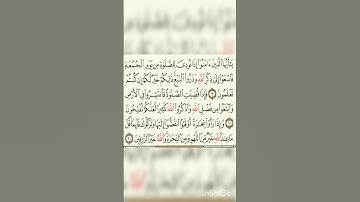 يَٰٓأَيُّهَا ٱلَّذِينَ ءَامَنُوٓا۟ إِذَا نُودِىَ لِلصَّلَوٰةِ مِن يَوْمِ ٱلْجُمُعَةِ
فَٱسْعَوْا۟ إِلَىٰ ذِكْرِ ٱللَّهِ وَذَرُوا۟ ٱلْبَيْعَ ذَٰلِكُمْ خَيْرٌ لَّكُمْ إِن كُنتُمْ
تَعْلَمُونَ ۝٩ فَإِذَا قُضِيَتِ ٱلصَّلَوٰةُ فَٱنتَشِرُوا۟ فِى ٱلْأَرْضِ
وَٱبْتَغُوا۟ مِن فَضْلِ ٱللَّهِ وَٱذْكُرُوا۟ ٱللَّهَ كَثِيرًا لَّعَلَّكُمْ تُفْلِحُونَ
۝١٠ وَإِذَا رَأَوْا۟ تِجَٰرَةً أَوْ لَهْوًا ٱنفَضُّوٓا۟ إِلَيْهَا وَتَرَكُوكَ قَآئِمًا قُلْ
مَا عِندَ ٱللَّهِ خَيْرٌ مِّنَ ٱللَّهْوِ وَمِنَ ٱلتِّجَٰرَةِ وَٱللَّهُ خَيْرُ ٱلرَّٰزِقِينَ ۝١١
InShOt